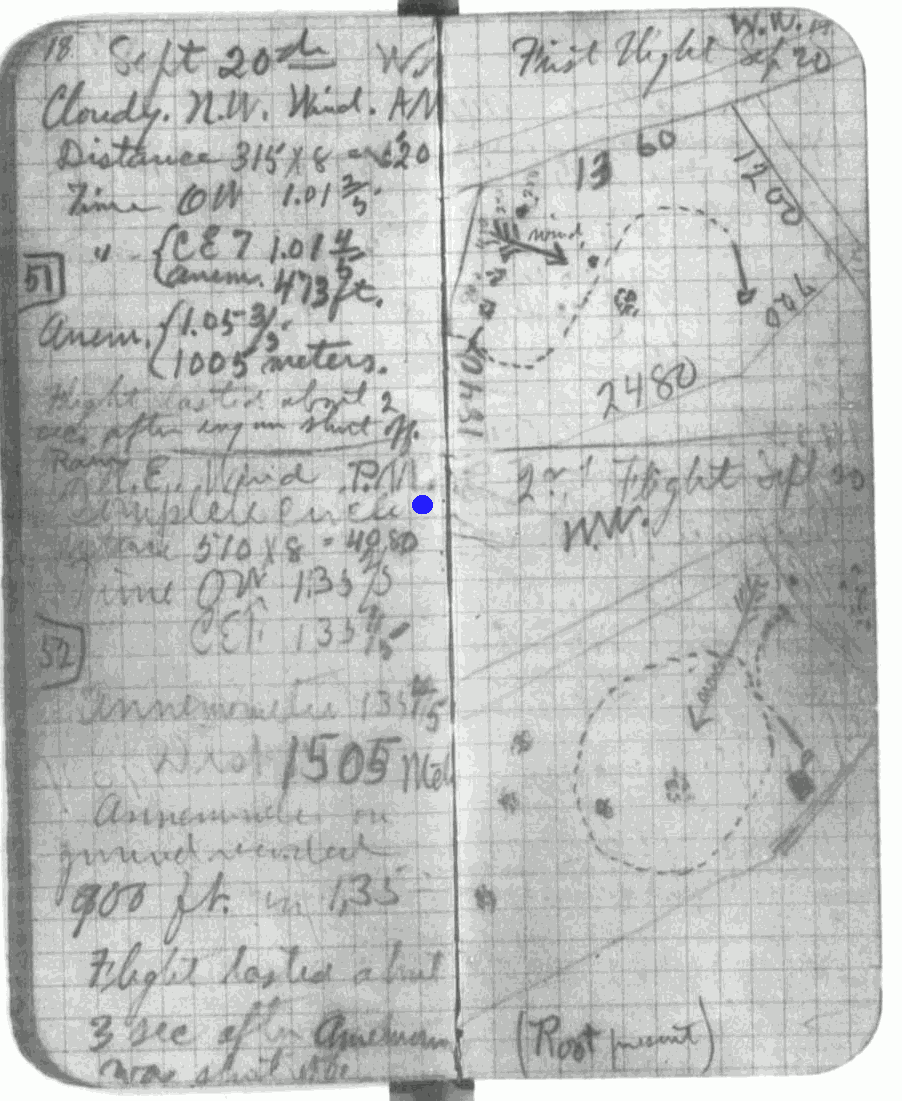 18 Sept 20th W.
Cloudy. N.W. Wind. AM
Distance 315 X 8 =
Time OW 1.01 3/5
" CET 1.01 4/5
anem. 473 ft.
51
Anem. 1.05 3/5
1005 meters.
Flight lasted about 2
sec. after engin shut off.
N.E. Wind P.M.
Complete Circle
510 X 8 = 4080
Time OW 1.35
CET. 1.35
52
Annemometer 1.35 4/5
Dist 1505 Met
Annemometer on
ground recorded
900 ft. in 1.35
Flight lasted about
3 sec after Annemom
was shut off.
First Flight W.W.
Sep 20
13 60
1200
wind
700
1840
2480
2nd Flight Sept 20
W.W.
wind
(Root present)